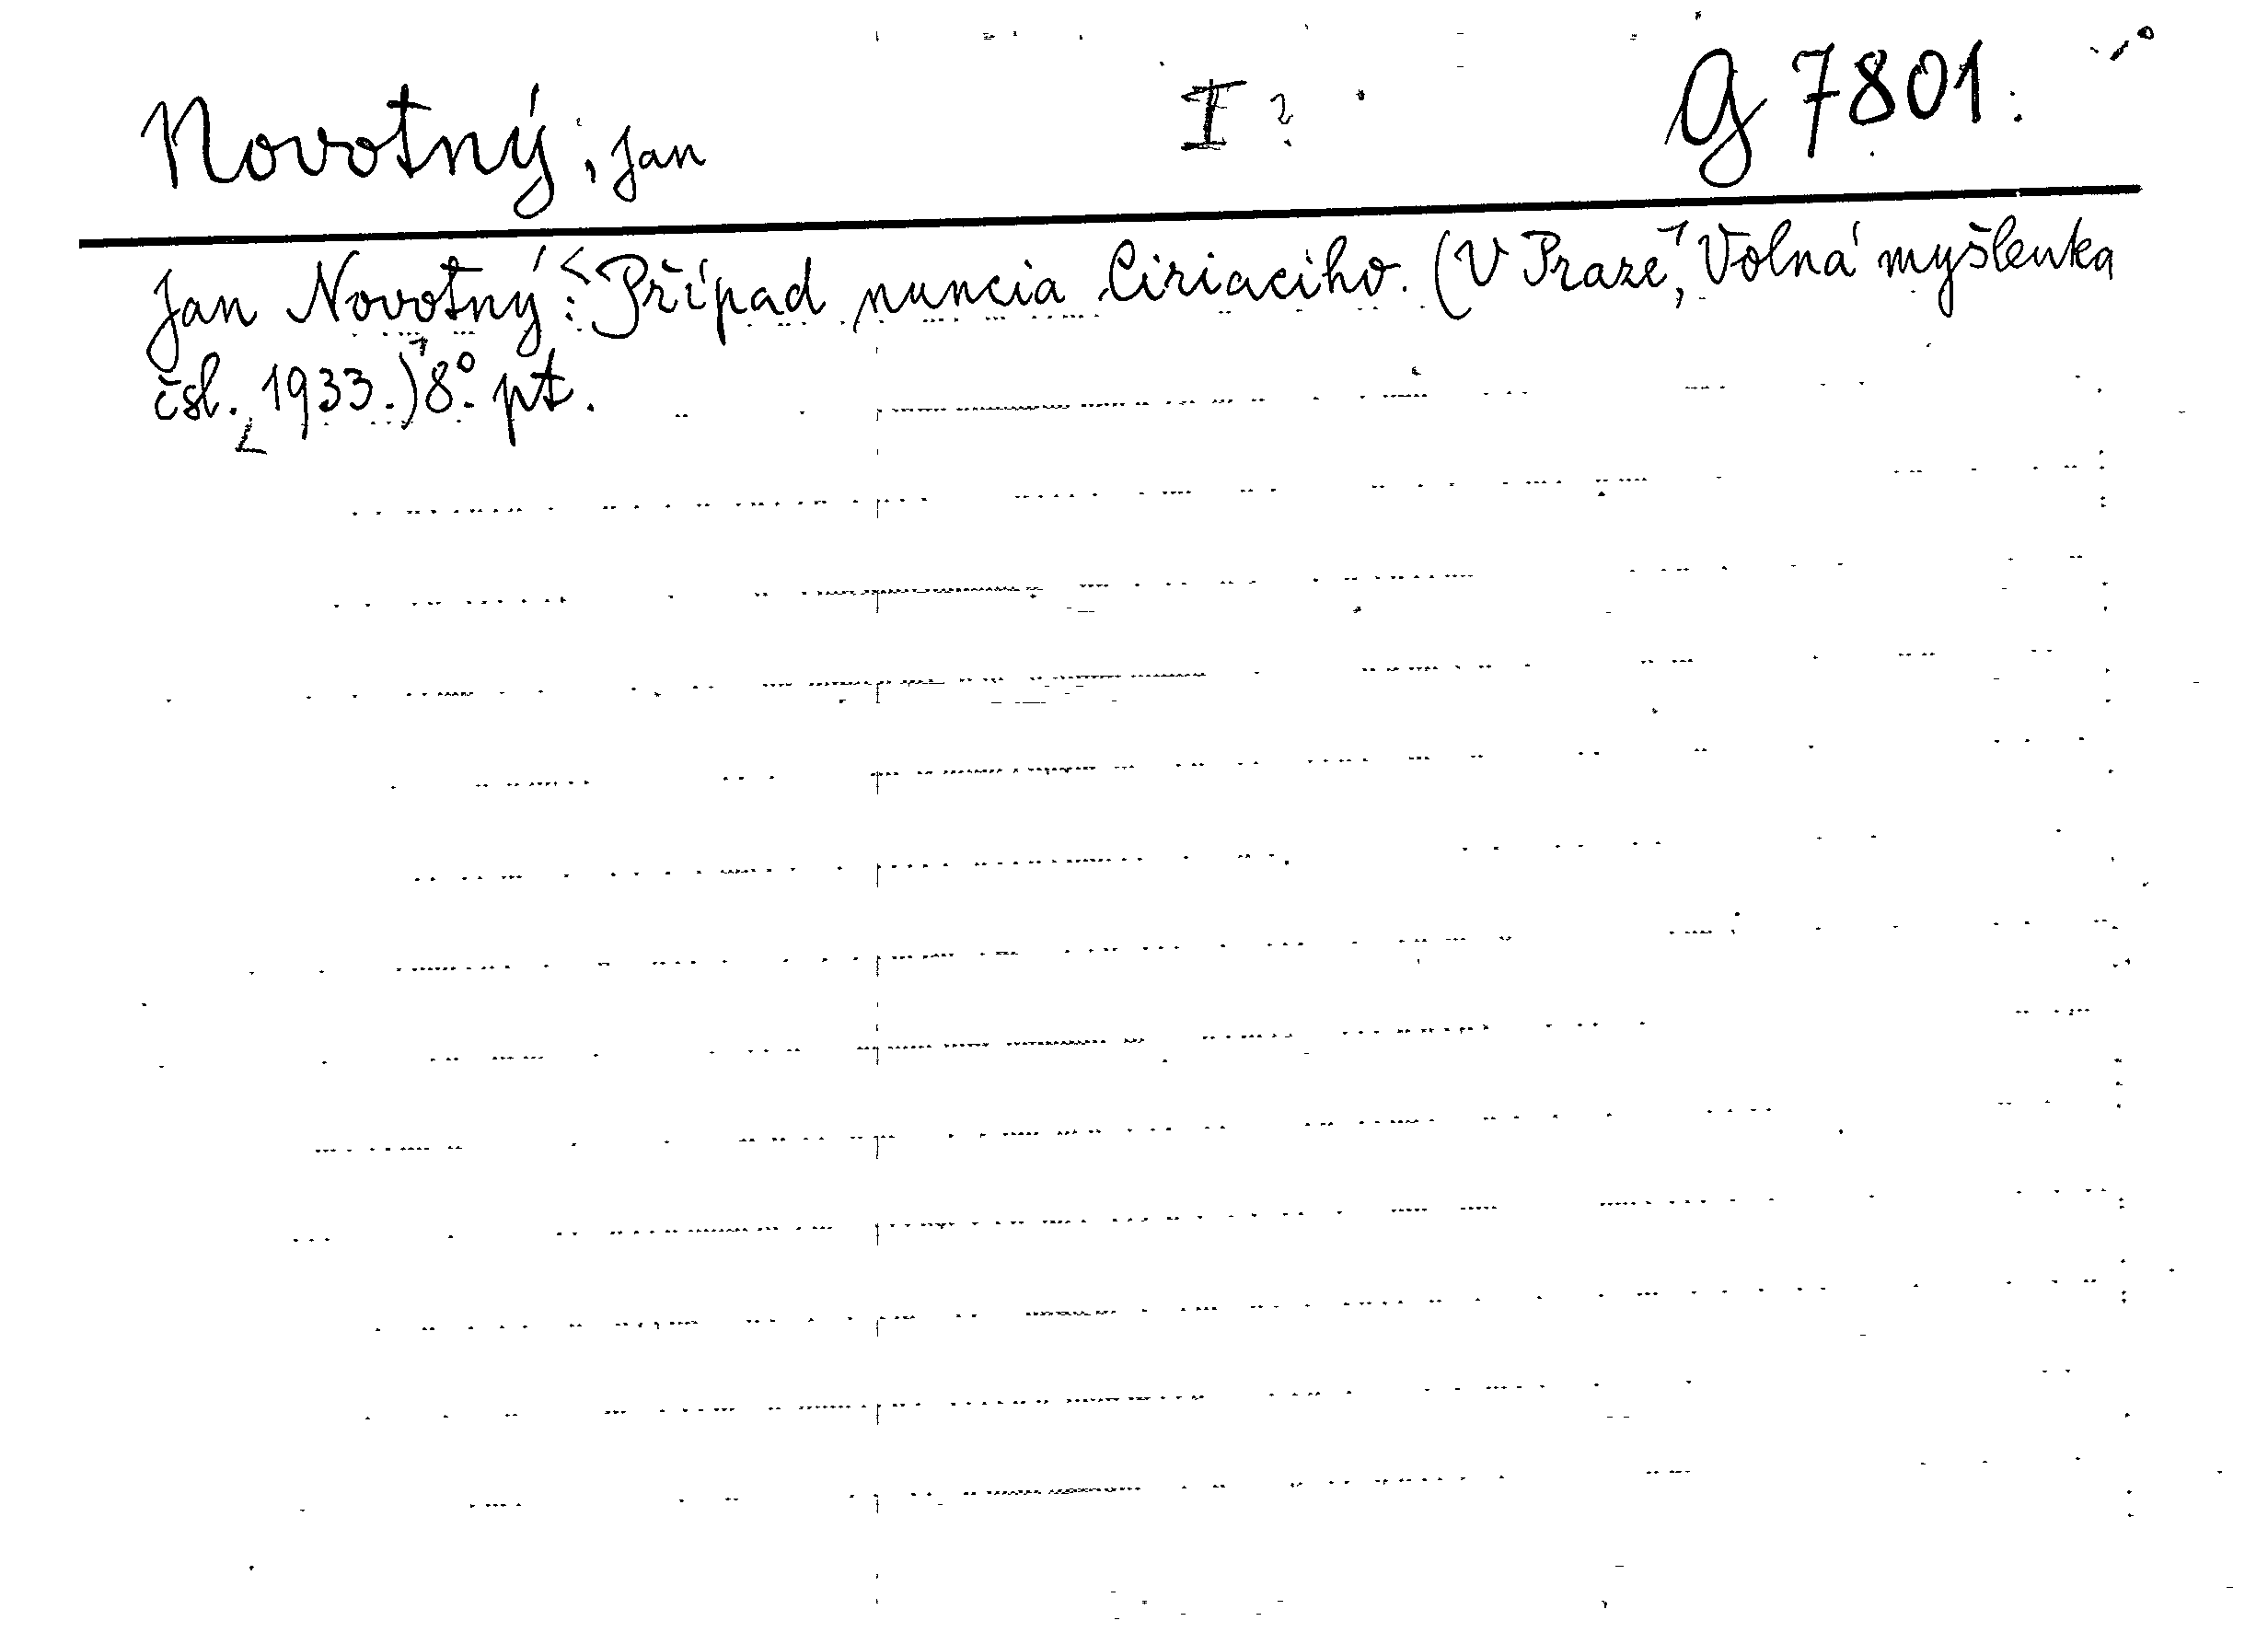 Novotný, Jan I ? G 7801.
Jan Novotný: Případ nuncia Ciriaciho. (V Praze, Volná myšlenka
čsl., 1933.) 8°. pt.